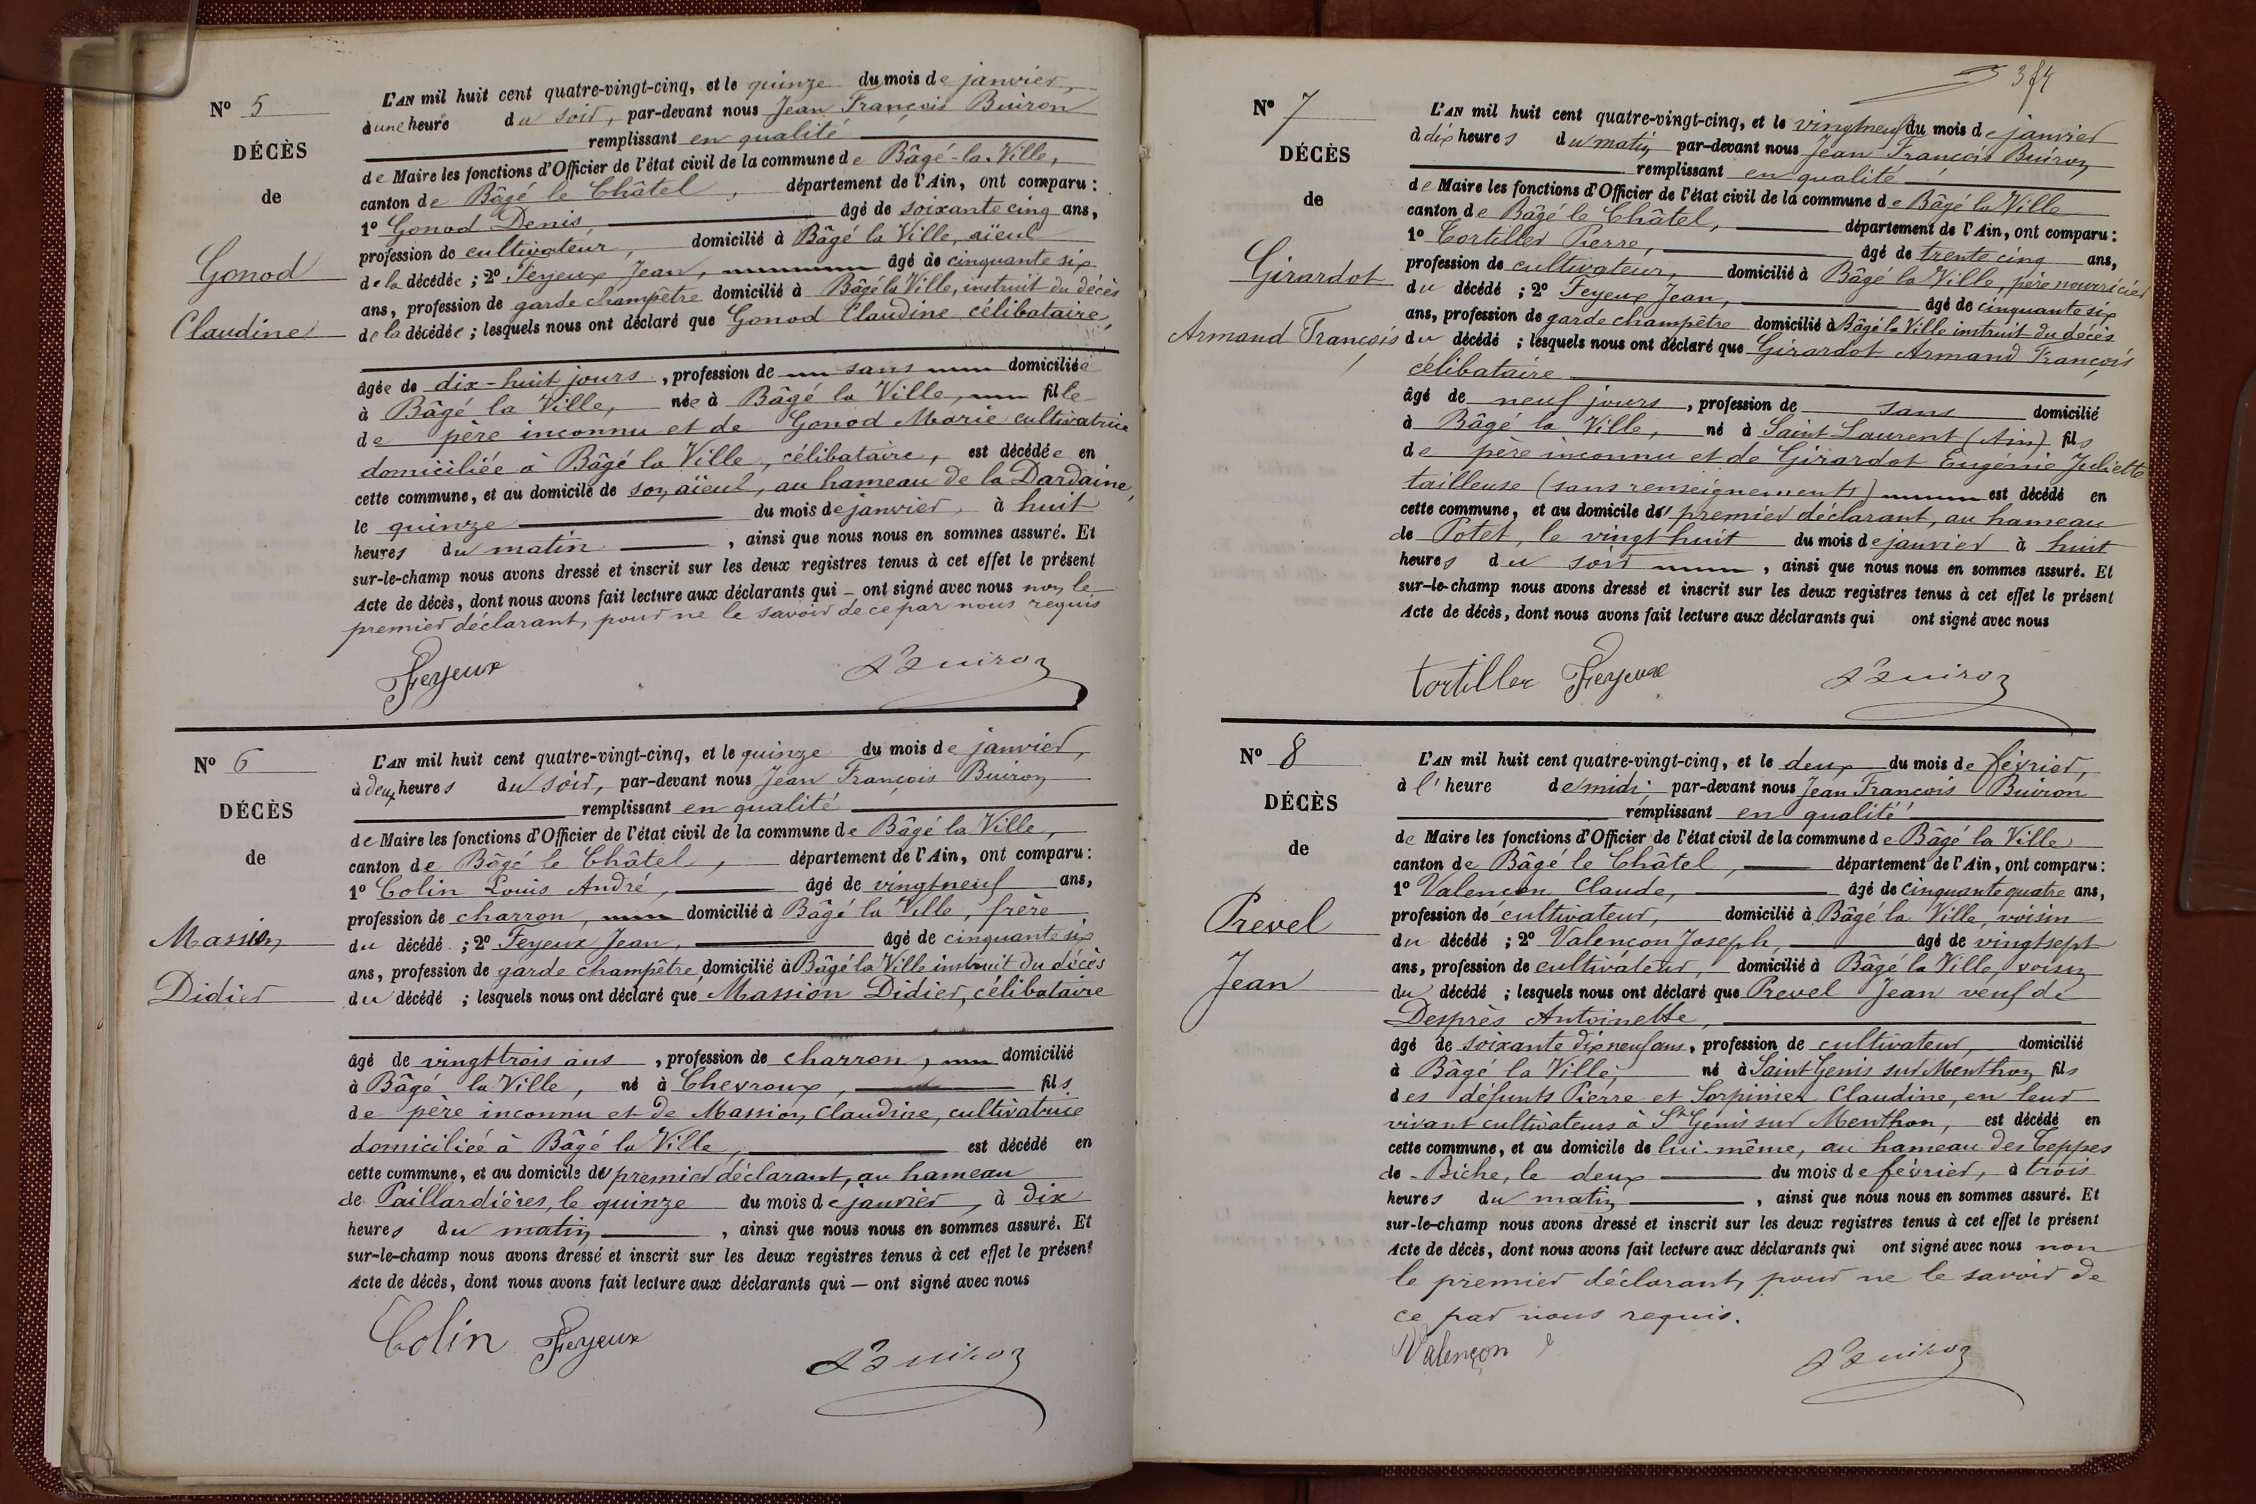 N° 5
DÉCÈS
de
Gonod
Claudine
L'AN mil huit cent quatre-vingt-cinq, et le quinze du mois de janvier,
à une heure du soir, par-devant nous Jean François Buiron
remplissant en qualité
de Maire les fonctions d'Officier de l'état civil de la commune de Bâgé-la-Ville,
canton de Bâgé le Châtel, département de l'Ain, ont comparu :
1° Gonod Denis âgé de soixante cinq ans,
profession de cultivateur, domicilié à Bâgé la Ville, aïeul
de la décédée ; 2° Feyeux Jean, âgé de cinquante six
ans, profession de garde champêtre domicilié à Bâgé la Ville, instruit du décès
de la décédée ; lesquels nous ont déclaré que Gonod Claudine célibataire,
âgée de dix-huit jours, profession de sans domiciliée
à Bâgé la Ville, née à Bâgé la Ville, fille
de père inconnu et de Gonod Marie cultivatrice
domiciliée à Bâgé la Ville, célibataire, est décédée en
cette commune, et au domicile de son aïeul, au hameau de la Dardaine,
le quinze du mois de janvier, à huit
heures du matin , ainsi que nous nous en sommes assuré. Et
sur-le-champ nous avons dressé et inscrit sur les deux registres tenus à cet effet le présent
Acte de décès, dont nous avons fait lecture aux déclarants qui – ont signé avec nous non le
premier déclarant, pour ne le savoir de ce par nous requis
Feyeux Buiron
N° 6
DÉCÈS
de
Massion
Didier
L'AN mil huit cent quatre-vingt-cinq, et le quinze du mois de janvier,
à deux heures du soir, par-devant nous Jean François Buiron
remplissant en qualité
de Maire les fonctions d'Officier de l'état civil de la commune de Bâgé la Ville,
canton de Bâgé le Châtel, département de l'Ain, ont comparu :
1° Colin Louis André, âgé de vingt neuf ans,
profession de charron, domicilié à Bâgé la Ville, frère
du décédé ; 2° Feyeux Jean, âgé de cinquante six
ans, profession de garde champêtre, domicilié à Bâgé la Ville instruit du décès
du décédé ; lesquels nous ont déclaré que Massion Didier, célibataire
âgé de vingt trois ans, profession de charron, domicilié
à Bâgé la Ville, né à Chevroux, fils
de père inconnu et de Massion Claudine, cultivatrice
domiciliée à Bâgé la Ville, est décédé en
cette commune, et au domicile du premier déclarant, au hameau
de Paillardières, le quinze du mois de janvier, à dix
heures du matin , ainsi que nous nous en sommes assuré. Et
sur-le-champ nous avons dressé et inscrit sur les deux registres tenus à cet effet le présent
Acte de décès, dont nous avons fait lecture aux déclarants qui – ont signé avec nous
Colin Feyeux Buiron
N° 7
DÉCÈS
de
Girardot
Armand François
L'AN mil huit cent quatre-vingt-cinq, et le vingt neuf du mois de janvier
à dix heures du matin par-devant nous Jean François Buiron
remplissant en qualité
de Maire les fonctions d'Officier de l'état civil de la commune de Bâgé la Ville
canton de Bâgé le Châtel, département de l'Ain, ont comparu :
1° Tortiller Pierre, âgé de trente cinq ans,
profession de cultivateur, domicilié à Bâgé la Ville, père nourricier
du décédé ; 2° Feyeux Jean, âgé de cinquante six
ans, profession de garde champêtre domicilié à Bâgé la Ville instruit du décès
du décédé ; lesquels nous ont déclaré que Girardot Armand François
célibataire
âgé de neuf jours, profession de sans domicilié
à Bâgé la Ville, né à Saint Laurent (Ain) fils
de père inconnu et de Girardot Eugénie Juliette
tailleuse (sans renseignements) est décédé en
cette commune, et au domicile du premier déclarant, au hameau
de Potet, le vingt huit du mois de janvier à huit
heures du soir , ainsi que nous nous en sommes assuré. Et
sur-le-champ nous avons dressé et inscrit sur les deux registres tenus à cet effet le présent
Acte de décès, dont nous avons fait lecture aux déclarants qui ont signé avec nous
tortiller Feyeux Buiron
N° 8
DÉCÈS
de
Prevel
Jean
L'AN mil huit cent quatre-vingt-cinq, et le deux du mois de février,
à l'heure de midi par-devant nous Jean François Buiron
remplissant en qualité
de Maire les fonctions d'Officier de l'état civil de la commune de Bâgé la Ville
canton de Bâgé le Châtel, département de l'Ain, ont comparu :
1° Valençon Claude, âgé de cinquante quatre ans,
profession de cultivateur, domicilié à Bâgé la Ville, voisin
du décédé ; 2° Valençon Joseph, âgé de vingt sept
ans, profession de cultivateur, domicilié à Bâgé la Ville, voisin
du décédé ; lesquels nous ont déclaré que Prevel Jean veuf de
Desprès Antoinette,
âgé de soixante dix neuf ans, profession de cultivateur, domicilié
à Bâgé la Ville, né à Saint Genis sur Menthon fils
des défunts Pierre et Sorpinier Claudine, en leur
vivant cultivateurs à St Genis sur Menthon, est décédé en
cette commune, et au domicile de lui-même, au hameau des Teppes
de Biche, le deux du mois de février, à trois
heures du matin , ainsi que nous nous en sommes assuré. Et
sur-le-champ nous avons dressé et inscrit sur les deux registres tenus à cet effet le présent
Acte de décès, dont nous avons fait lecture aux déclarants qui ont signé avec nous non
le premier déclarant, pour ne le savoir de
ce par nous requis.
Valençon J Buiron